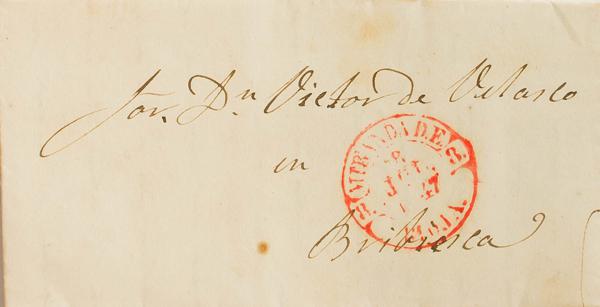 Sor. Dn Victor de Velasco
en
Bribiesca
MIRANDA D. E.
8
JUL
47
RIOJA.